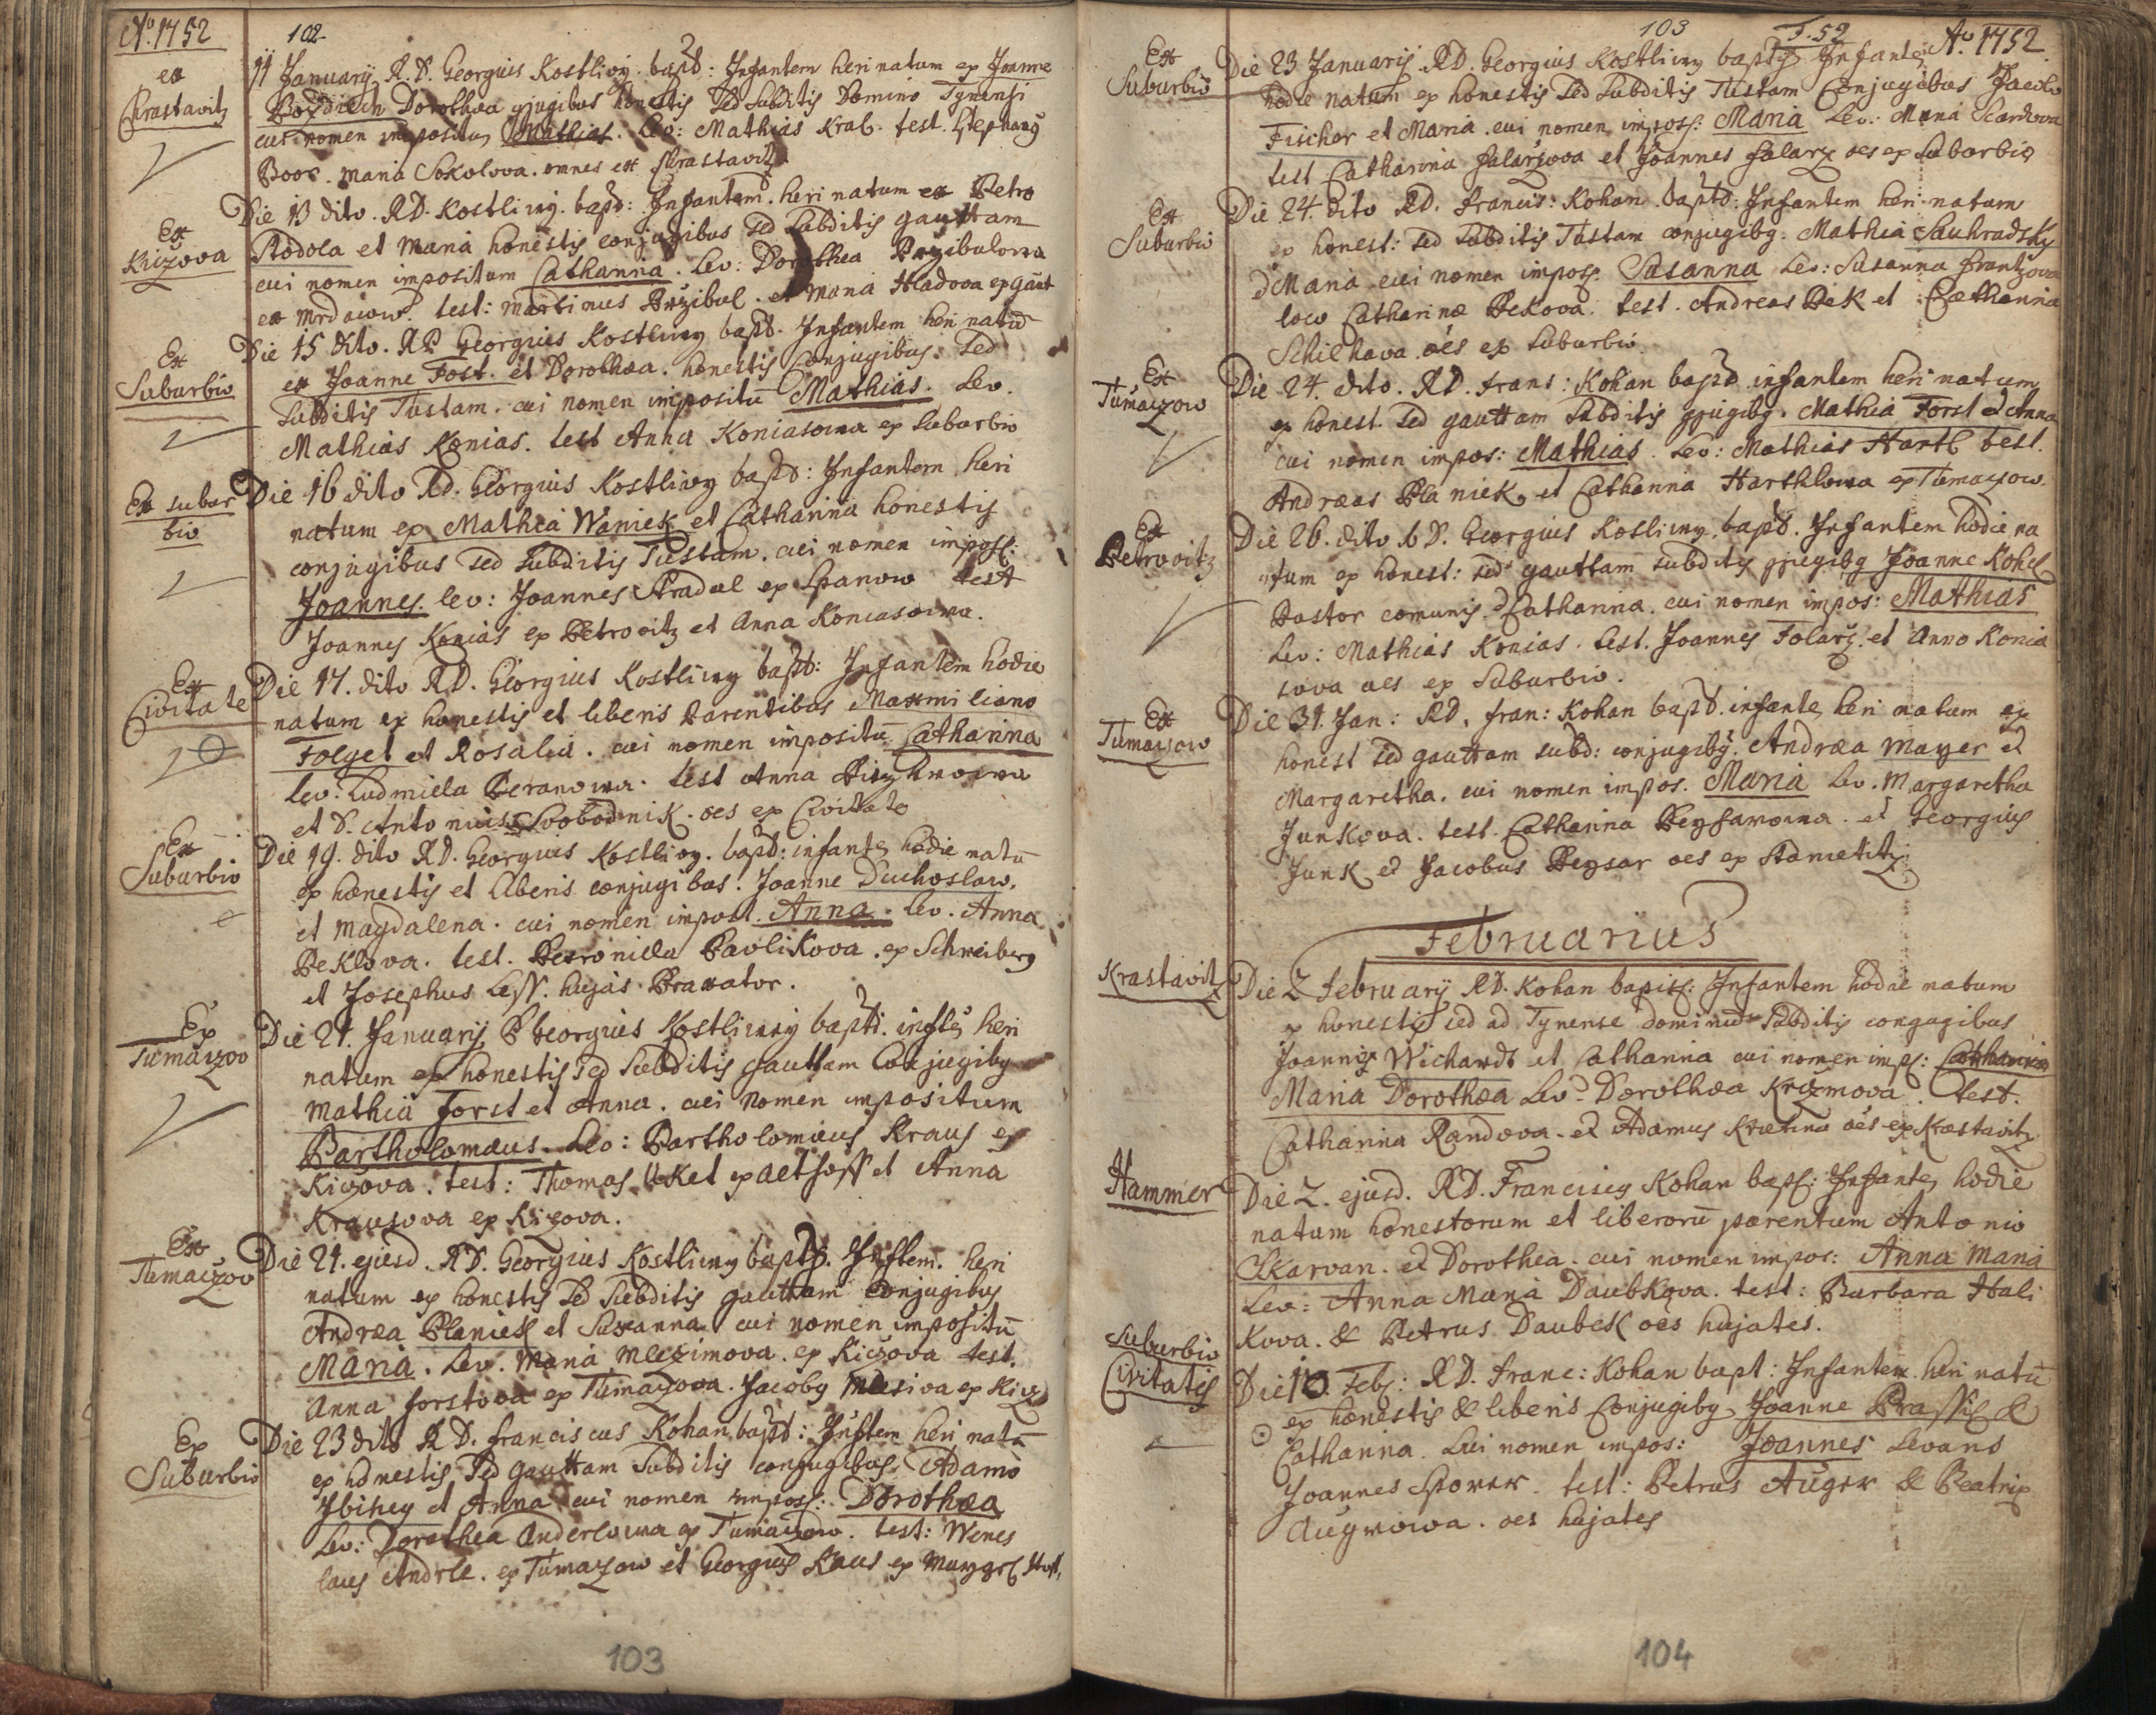 Aõ. 1752
102
ex
Chrastavitz
11 Januarij R. D. Georgius Kostliwy bapt: Infantem heri natum ex Joanne
Dorothea conjugibus honestis sed subditis Domino Tynensi
cui nomen impositum Mathias. Lev: Mathias Kral. test. Stephanus
Boor. Maria Sokolova. omnes ex Chrastavitz
Ex
Kiczova
Die 13 dito. RD. Kostliwy. bapt: Infantem heri natum ex Petro
Stodola et Maria honestis conjugibus sed subditis Gauttam
cui nomen impositum Catharina. Lev: Dorothea Przibulowa
ex Mrdakow. test: Martinus Przibul. et Maria Hladova ex Gaut
Ex
Suburbio
Die 15 dito. RD Georgius Kostliwy bapt. Infantem heri natū
ex Joanne Forst. et Dorothæa. honestis Conjugibus. sed
subditis Tustam. cui nomen impositū Mathias. Lev.
Mathias Konias. test Anna Koniasowa ex Suburbio
Ex subur
bio
Die 16 dito RD. Georgius Kostliwy bapt: Infantem heri
natum ex Mathia Waniek et Catharina honestis
conjugibus sed subditis Tustam. cui nomen impos:
Joannes. lev: Joannes Stradal ex Spanow test
Joannes Konias ex Petrovitz et Anna Koniasowa.
Ex
Civitate
Die 17. dito RD. Georgius Kostliwy bapt: Infantem hodie
natum ex honestis et liberis Parentibus Maxmiliano
Folget et Rosalia. cui nomen impositū Catharina
Lev. Ludmiela Beranowa. test Anna
et D. Antonius Svobodnik. oes ex Civitate
Ex
Suburbio
Die 19. dito RD. Georgius Kostliwy. bapt: infante hodie natū
ex honestis et liberis conjugibus. Joanne Duchoslaw.
et Magdalena. cui nomen impost. Anna. Lev. Anna
Peklova. test. Petronilla Pavlikova. ex Schreiberg
et Josephus Less. hujas Braxator.
Ex
Tumaczov
Die 21. Januarij P Georgius Kostliwy bapt. infte heri
natum ex honestis sed subditis Gauttam Conjugibg
Mathia Forst et Anna. cui nomen impositum
Bartholomæus. Lev: Bartholomæus Kraus ex
Kiczova. test: Thomas Uket ex Althoff et Anna
Krausova ex Kiczova.
Ex
Tumaczov
Die 21. ejusd. RD. Georgius Kostliwy bapt. Inftem. heri
natum ex honestis sed subditis Gauttam conjugibus
Andræa Planiek et Susanna cui nomen impositū
Maria. Lev. Maria Mlezimova. ex Kiczova test.
Anna Forstova ex Tumaczova. Jacobg Mleziva ex Kicz
Ex
Suburbio
Die 23 dito R D. Franciscus Kohan bapt: Inftem heri natū
ex honestis sed Gauttam subditis conjugibus Adamo
et Anna cui nomen impos: Dorothæa
Lev: Dorothea Anderlowa ex Tumaczow. test: Wenes
laus Andrle. ex Tumaczow et Georgius Kaus ex Hoff.
103
103
F. 52
Aõ. 1752.
Ex
Suburbio
Die 23 Januarij RD. Georgius Kostliwy bapt. Infante
hodie natum ex honestis sed subditis Tustam Conjugibus Jacobo
Fischer et Maria. cui nomen impos: Maria Lev: Maria
test Catharina Falarzova et Joannes Falarz oes ex Suburbio
Ex
Suburbio
Die 24. dito RD. Francis: Kohan bapt: Infantem heri natum
ex honest: sed subditis Tustam conjugibg. Mathia Sauhradsky
et Maria cui nomen impos: Susanna Lev: Susanna Frantzova
loco Catharinæ Pekova. test. Andreas Pek et Catharina
oēs ex Suburbio.
Ex
Tumaczow
Die 24. dito. RD. Frans: Kohan bapt infantem heri natum
ex honest. sed Gauttam subditis cjugibg. Mathia Forst et Anna
cui nomen impos: Mathias. Lev: Mathias Hartl test.
Andræas Planiek et Catharina Harthlowa ex Tumaczow.
Ex
Petrovitz
Die 26. dito RD. Georgius Kostliwy. bapt. Infantem hodie na
tum ex honest: sed Gauttam subditis cjugibg Joanne Kohel
Pastor comunis et Catharina. cui nomen impos: Mathias
Lev: Mathias Konias. test. Joannes Folarz. et Anna Konia
sova oes ex Suburbio.
Ex
Tumaczow
Die 31. Jan: RD. Fran: Kohan bapt. infante heri natum ex
honest sed Gauttam subd: conjugibg. Andræa Mayer et
Margaretha. cui nomen impos. Maria Lev. Margaretha
Junkova. test. Catharina Peysarowa. et Georgius
Junk et Jacobus Peysar oes ex Stanietitz
Februarius
Krastavitz
Die 2 Februarij RD. Kohan bapti: Infantem hodie natum
ex honestis sed ad Tynense dominiū subditis conjugibus
Joannis Wichardt et Catharina cui nomen imps: Catharina
Maria Dorothæa Lev. Dorothæa Krizmova. test.
Catharina Randova. et Adamus oēs ex Krastavitz
Hammer
Die 2. ejusd. RD. Franciscg Kohan bapt: Infante hodie
natum honestorum et liberorū parentum Antonio
Skarvan. et Dorothea. cui nomen impos: Anna Maria
Lev: Anna Maria Daubkova. test: Barbara Hali
kova. & Petrus Daubek oes hujates.
Suburbio
Civitatis
Die 10. Feb: RD. Franc: Kohan bapt: Infantem heri natū
ex honestis & liberis Conjugibg Joanne Prassil &
Catharina. Cui nomen impos: Joannes Levans
Joannes Sporer. test: Petrus Auger & Beatrix
Augerowa. oes hujates
104